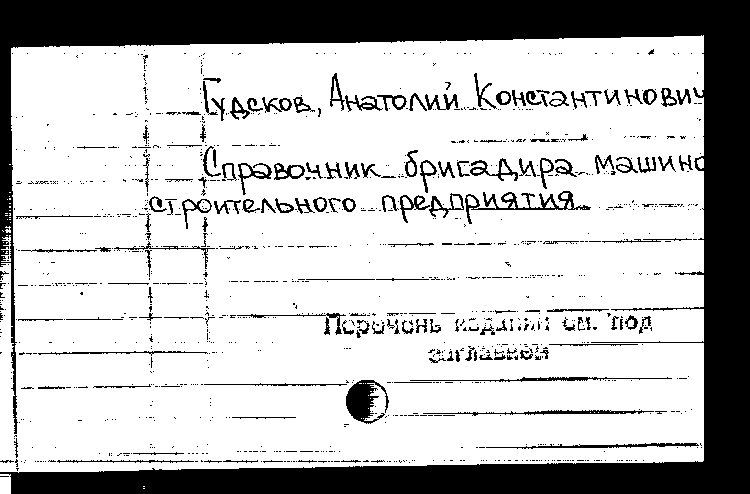 Гудсков, Анатолий Константинович
Справочник бригадира машино
строительного предприятия
Перечень изданий см. под
заглавием